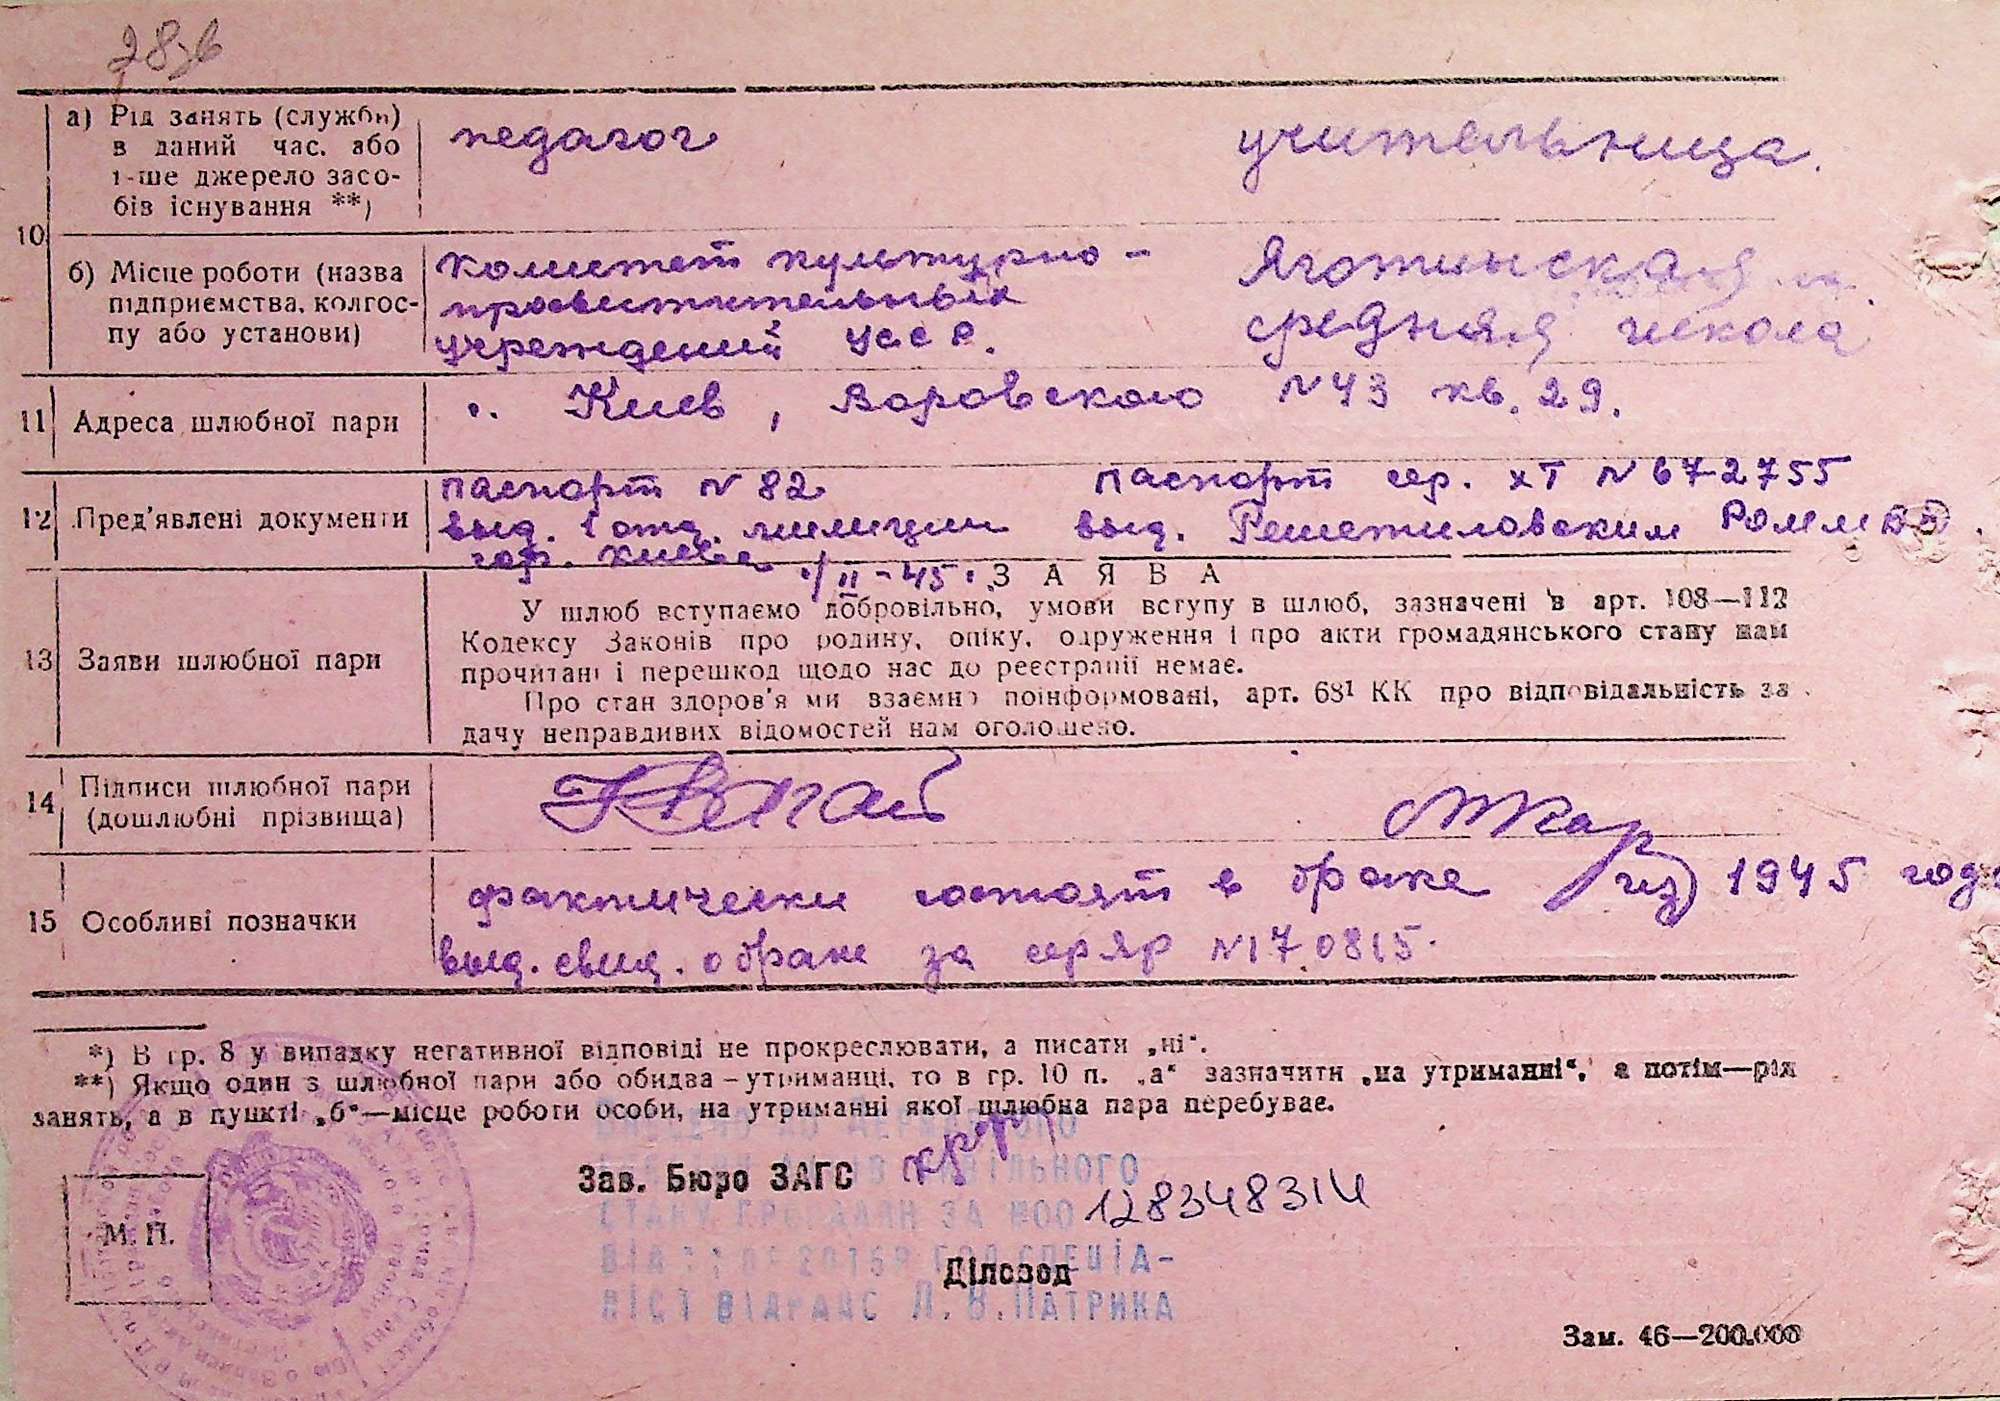 28зв
а) Рід занять (служби) в даний час. або 1-ше джерело засобів існування **)
педагог учительница.
10
б) Місце роботи (назва підприємства, колгоспу або установи)
комитет культурно- Яготинская
просветительных средняя школа
учреждений УССР.
11 Адреса шлюбної пари г. Киев, Воровского №43 кв. 29.
12 Пред'явлені документи
паспорт №82 паспорт сер. ХТ №672755
выд. 1 отд. милиции выд. Решетиловским
гор. Киева II-45.
13 Заяви шлюбної пари
ЗАЯВА
У шлюб вступаємо добровільно, умови вступу в шлюб, зазначені в арт. 108—112
Кодексу Законів про родину, опіку, одруження і про акти громадянського стану нам
прочитані і перешкод щодо нас до реєстрації немає.
Про стан здоров'я ми взаємно поінформовані, арт. 68¹ КК про відповідальність за
дачу неправдивих відомостей нам оголошено.
14 Підписи шлюбної пари
(дошлюбні прізвища)
15 Особливі позначки
фактически состоят в браке 1945 года
выд. свид. о браке за сер ЯР №170815.
*) В гр. 8 у випадку негативної відповіді не прокреслювати, а писати „ні“.
**) Якщо один з шлюбної пари або обидва – утриманці, то в гр. 10 п. „а“ зазначити „на утриманні“, а потім—рід
занять, а в пункті „б“—місце роботи особи, на утриманні якої шлюбна пара перебуває.
Зав. Бюро ЗАГС
ЦИВІЛЬНОГО
СТАНУ ГРОМАДЯН ЗА №00128348314
СПЕЦІА-
ЛІСТ ВІДРАЦС Л.В.ПАТРИКА
М. П.
Діловод
Зам. 46—200.000